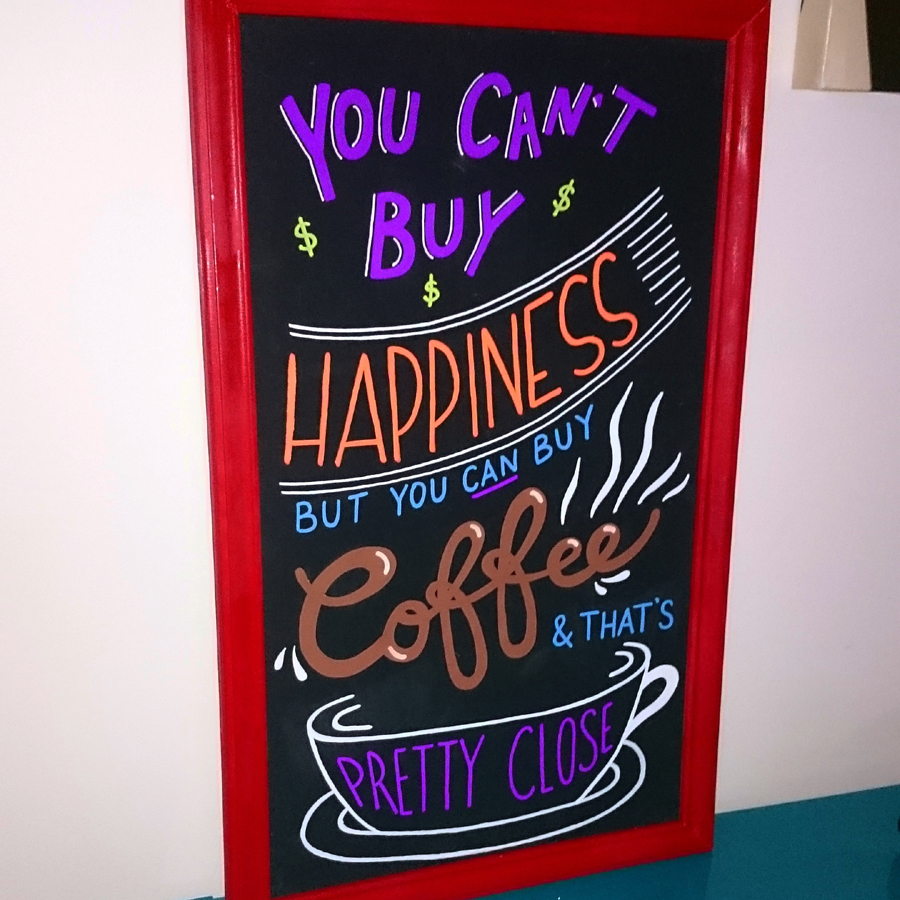 YOU CAN'T
$ BUY $
$
HAPPINESS
BUT YOU CAN BUY
Coffee
& THAT'S
PRETTY CLOSE